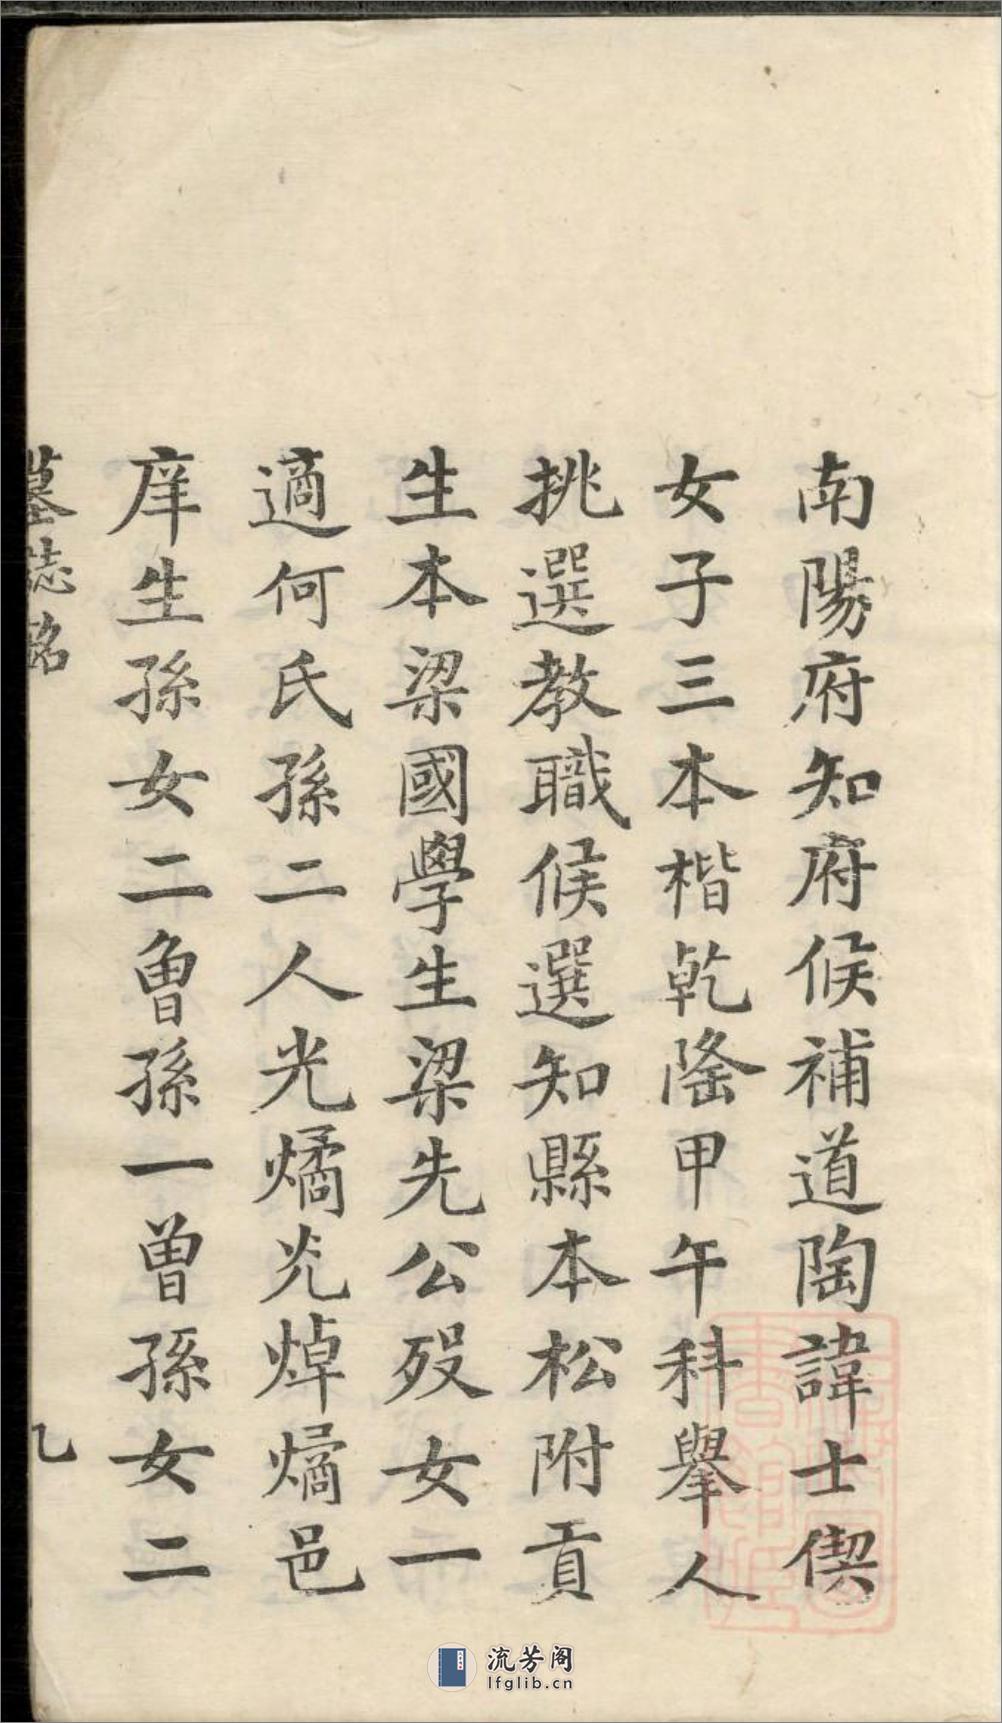 南陽府知府候補道陶諱士僎
女子三本楷乾隆甲午科舉人
挑選教職候選知縣本松附貢
生本梁國學生梁先公歿女一
適何氏孫二人光燏光焯燏邑
庠生孫女二曾孫一曾孫女二
墓誌銘
流芳阁
lfglib.cn